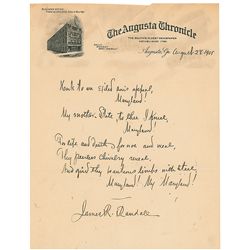 The Augusta Chronicle
THE SOUTH'S OLDEST NEWSPAPER
ESTABLISHED 1785
DAILY
SUNDAY
Augusta, Ga. August 28 1905
Hark to an exiled son's appeal,
Maryland.
My mother State to thee I kneel,
Maryland
For life and death, for woe and weal,
Thy peerless chivalry reveal,
And gird thy beauteous limbs with steel,
Maryland! My Maryland!
James R. Randall